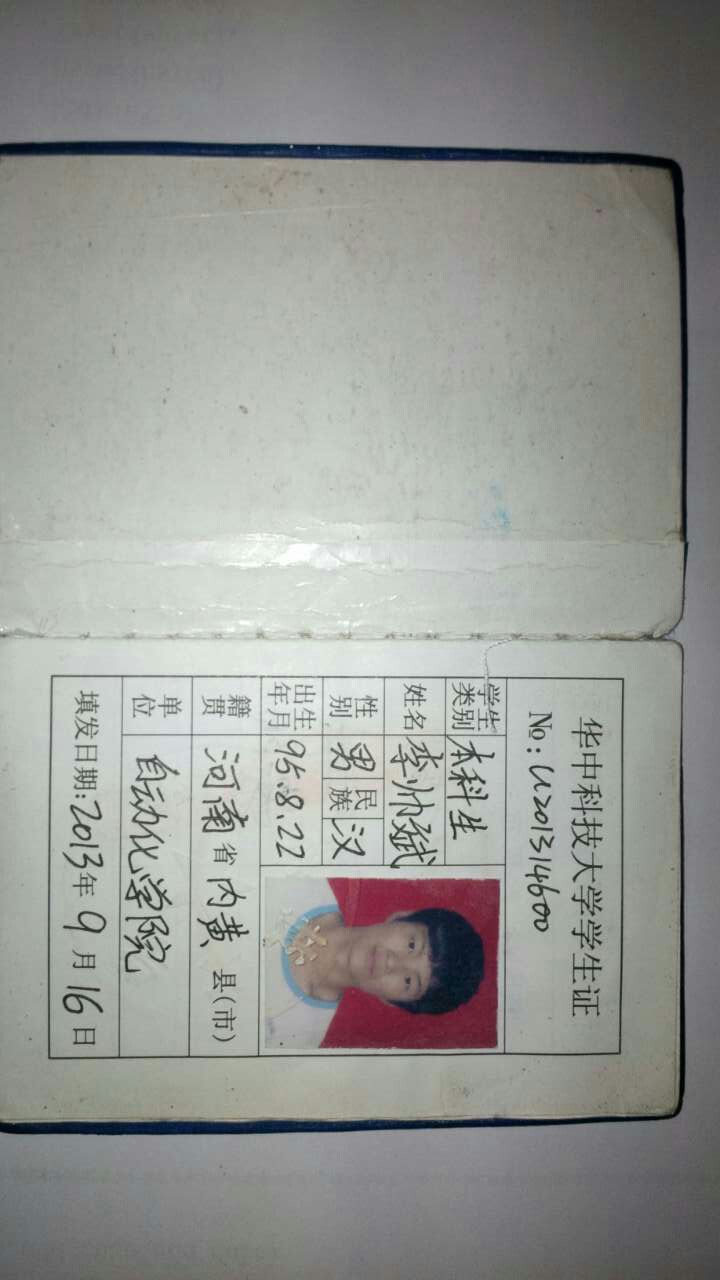 华中科技大学学生证
№: U201314600
学生类别 本科生
姓名 李帅斌
性别 男 民族 汉
出生年月 95.8.22
籍贯 河南省内黄县(市)
单位 自动化学院
填发日期:2013年9月16日